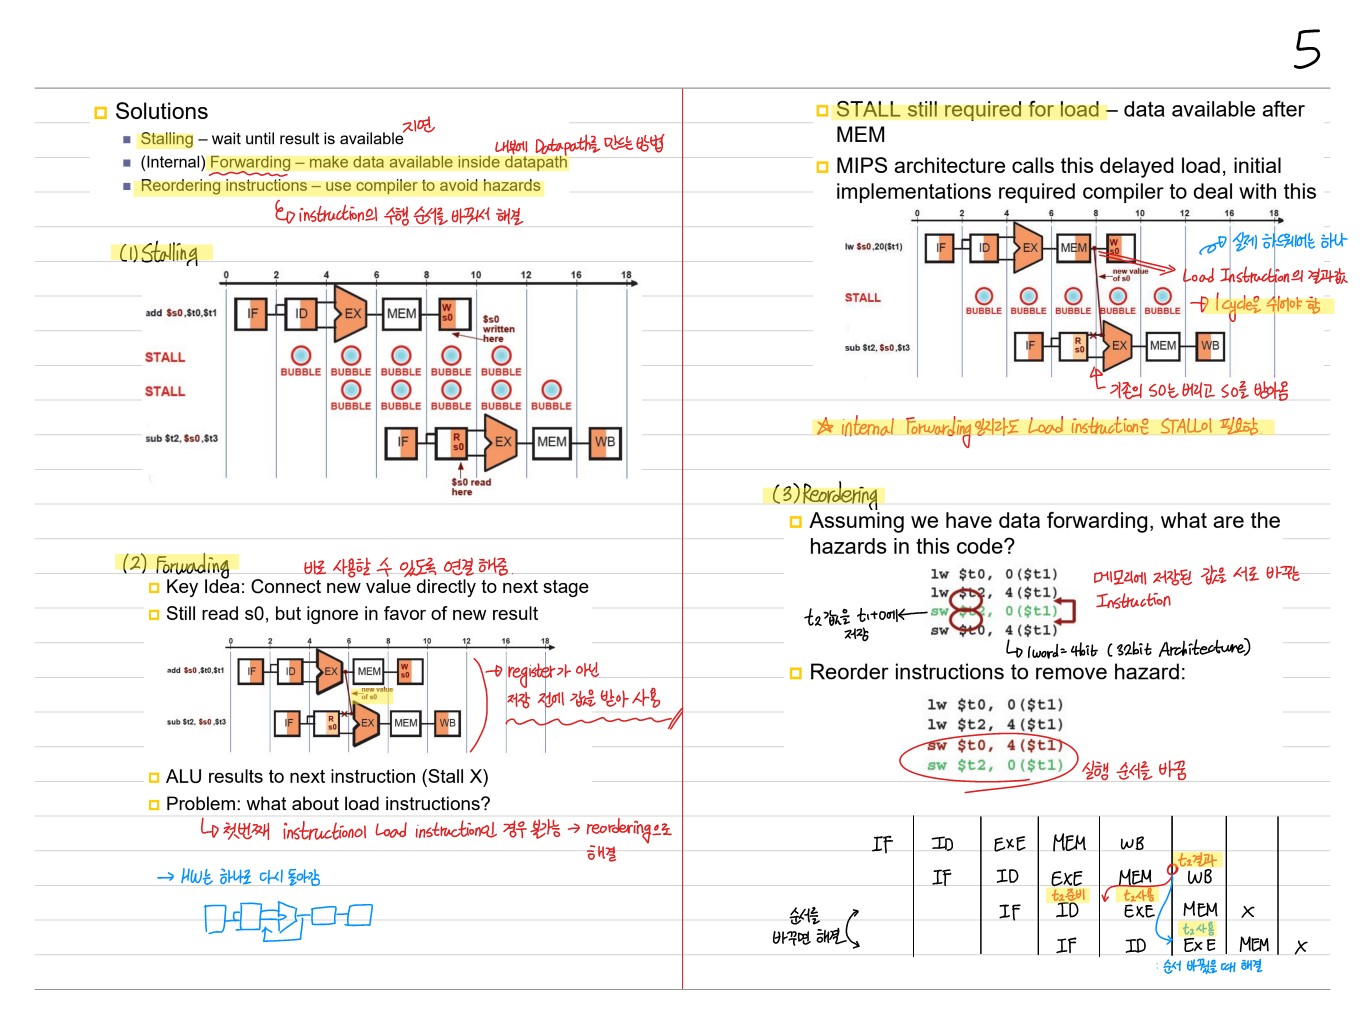 5
Solutions
Stalling – wait until result is available
지연
(Internal) Forwarding – make data available inside datapath
내부에 Datapath를 만드는 방법
Reordering instructions – use compiler to avoid hazards
instruction의 수행 순서를 바꿔서 해결
(1) Stalling
0 2 4 6 8 10 12 14 16 18
add $s0,$t0,$t1
IF ID EX MEM W s0
$s0 written here
STALL
BUBBLE BUBBLE BUBBLE BUBBLE BUBBLE
STALL
BUBBLE BUBBLE BUBBLE BUBBLE BUBBLE
sub $t2, $s0,$t3
IF R s0 EX MEM WB
$s0 read here
(2) Forwading
바로 사용할 수 있도록 연결 해줌.
Key Idea: Connect new value directly to next stage
Still read s0, but ignore in favor of new result
0 2 4 6 8 10 12 14 16 18
add $s0,$t0,$t1
IF ID EX MEM W s0
new value of s0
sub $t2, $s0,$t3
IF R s0 EX MEM WB
register가 아닌
저장 전에 값을 받아 사용
ALU results to next instruction (Stall X)
Problem: what about load instructions?
첫번째 instruction이 Load instruction인 경우 불가능 → reordering으로
해결
→ HW는 하나로 다시 돌아감
STALL still required for load – data available after
MEM
MIPS architecture calls this delayed load, initial
implementations required compiler to deal with this
0 2 4 6 8 10 12 14 16 18
lw $s0,20($t1)
IF ID EX MEM W s0
new value of s0
실제 하드웨어는 하나
Load Instruction의 결과값
→ 1 cycle을 쉬어야 함
STALL
BUBBLE BUBBLE BUBBLE BUBBLE BUBBLE
sub $t2, $s0,$t3
IF R s0 EX MEM WB
기존의 s0는 버리고 s0를 받아옴
☆ internal Forwarding일지라도 Load instruction은 STALL이 필요함.
(3) Reordering
Assuming we have data forwarding, what are the
hazards in this code?
lw $t0, 0($t1)
lw $t2, 4($t1)
sw $t2, 0($t1)
sw $t0, 4($t1)
메모리에 저장된 값을 서로 바꾸는
Instruction
t2 값을 t1+0에
저장
1word = 4bit (32bit Architecture)
Reorder instructions to remove hazard:
lw $t0, 0($t1)
lw $t2, 4($t1)
sw $t0, 4($t1)
sw $t2, 0($t1)
실행 순서를 바꿈
IF ID EXE MEM WB
t2결과
IF ID EXE MEM WB
t2준비 t2사용
IF ID EXE MEM X
순서를
바꾸면 해결
t2사용
IF ID EXE MEM X
: 순서 바꿨을 때 해결